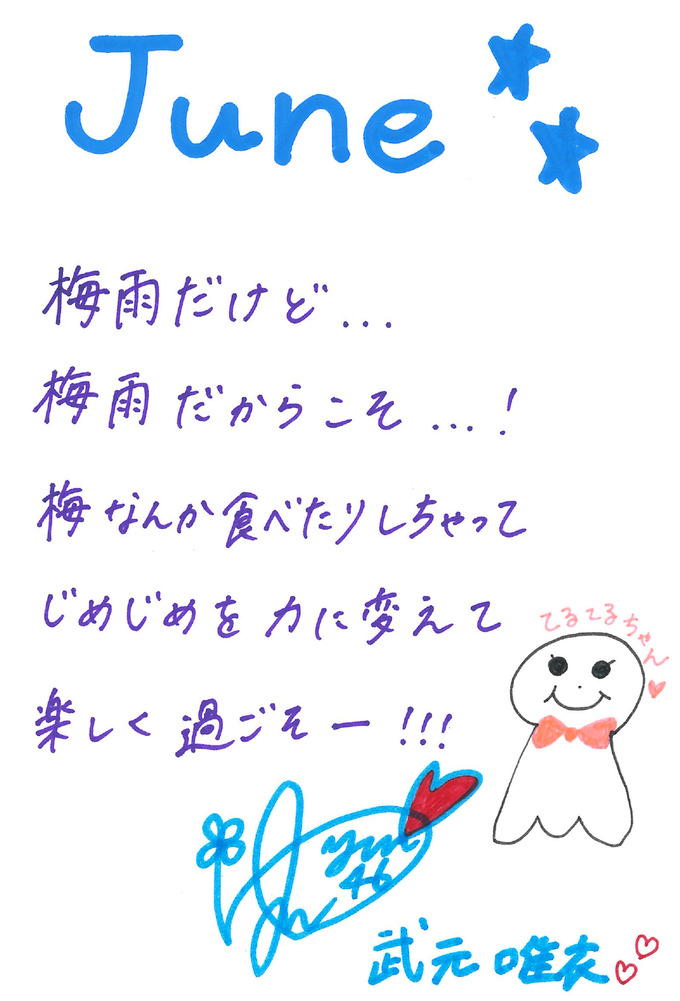 June
梅雨だけど...
梅雨だからこそ...!
梅なんか食べたりしちゃって
じめじめを力に変えて
楽しく過ごそー!!!
てるてるちゃん
yui
46
武元唯衣